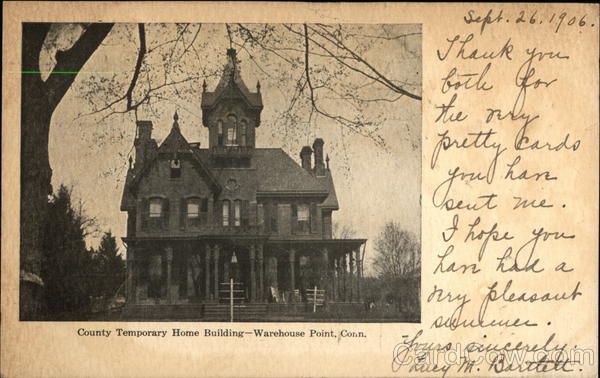 Sept. 26. 1906.
Thank you
both for
the very
pretty cards
you have
sent me.
I hope you
have had a
very pleasant
summer.
Yours sincerely.
Lucy M. Bartlett.
County Temporary Home Building—Warehouse Point, Conn.
CardCow.com